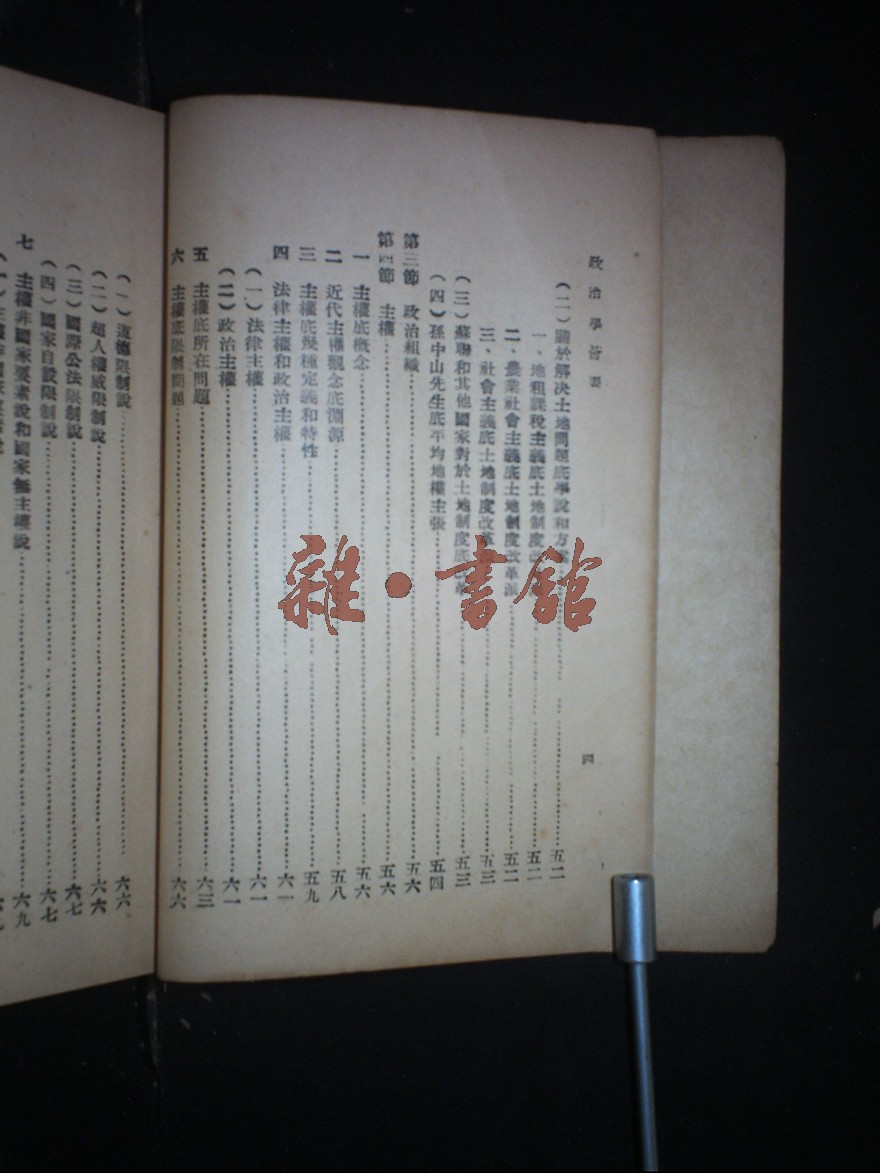 政治學括要
四
(二)關於解決土地問題底學說和方案……五二
一、地租課稅主義底土地制度改革派……五二
二、農業社會主義底土地制度改革派……五二
三、社會主義底土地制度改革……五三
(三)蘇聯和其他國家對於土地制度底改革……五三
(四)孫中山先生底平均地權主張……五四
第三節 政治組織……五六
第四節 主權……五六
一 主權底概念……五六
二 近代主權觀念底淵源……五八
三 主權底幾種定義和特性……五九
四 法律主權和政治主權……六一
(一)法律主權……六一
(二)政治主權……六一
五 主權底所在問題……六三
六 主權底限制問題……六六
(一)道德限制說……六六
(二)超人權威限制說……六六
(三)國際公法限制說……六七
(四)國家自設限制說……六七
七 主權非國家要素說和國家無主權說……六九
雜·書館